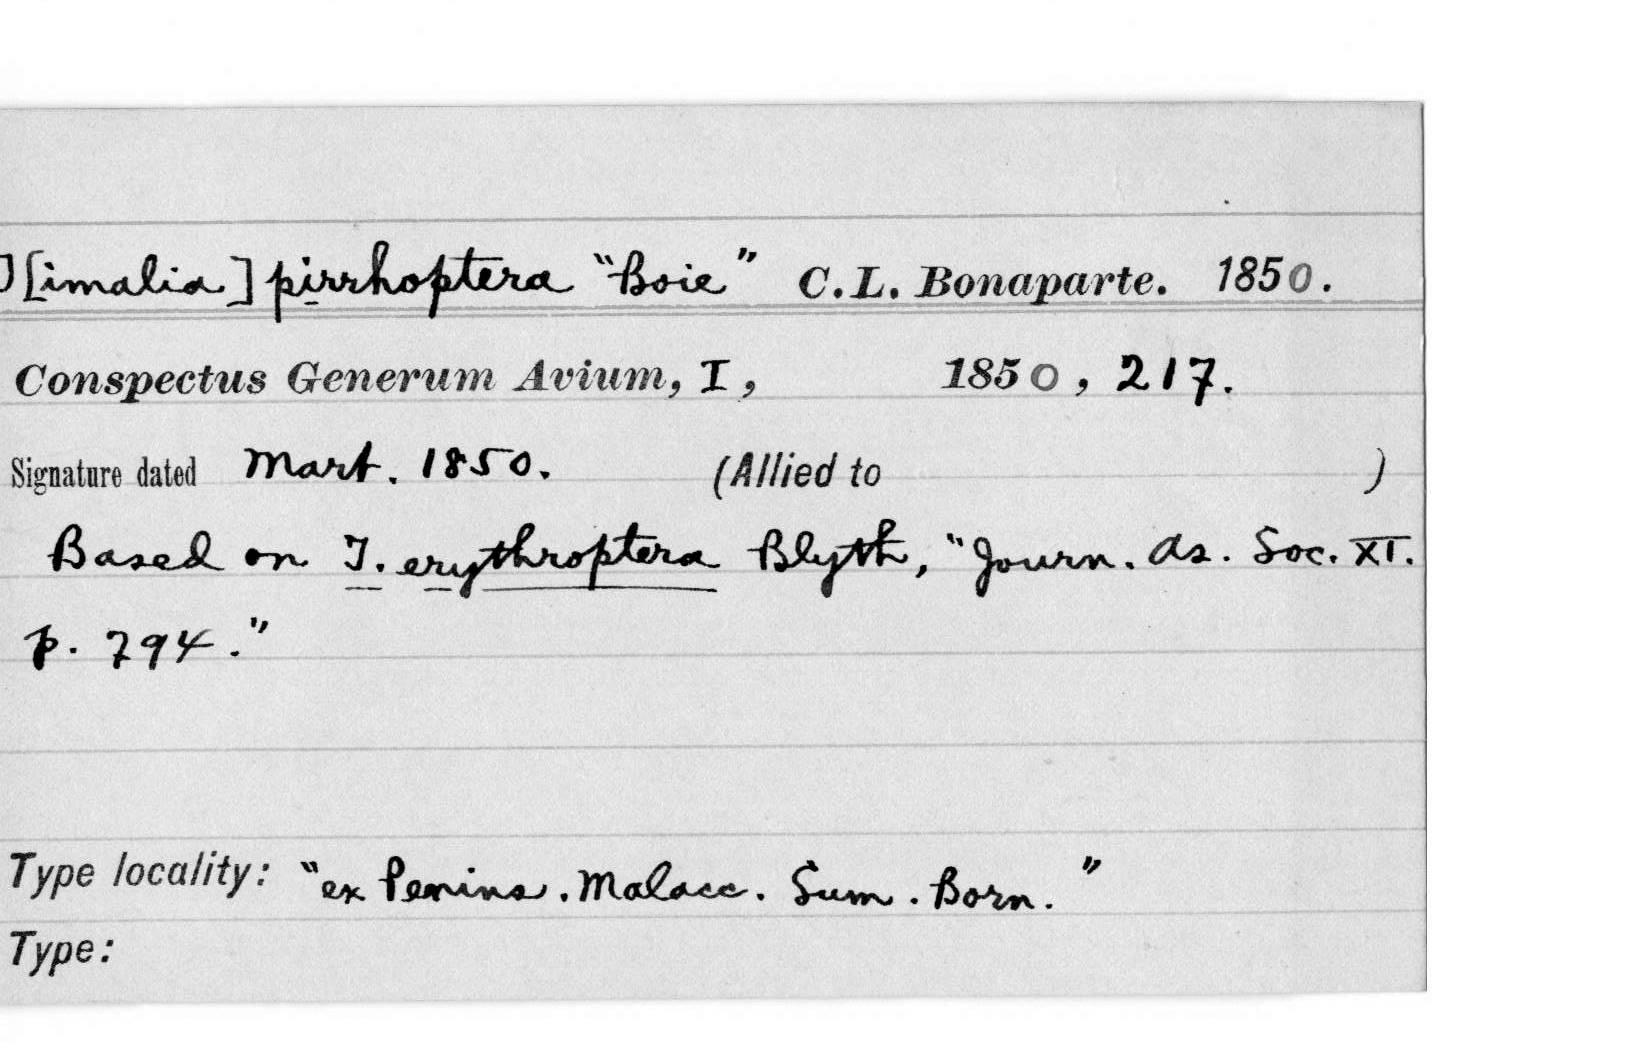 T[imalia] pirrhoptera "Boie" C.L. Bonaparte. 1850.
Conspectus Generum Avium, I, 1850, 217.
Signature dated Mart. 1850. (Allied to )
Based on T. erythroptera Blyth, "Journ. As. Soc. XI.
p. 794."
Type locality: "ex Penins. Malacc. Sum. Born."
Type: